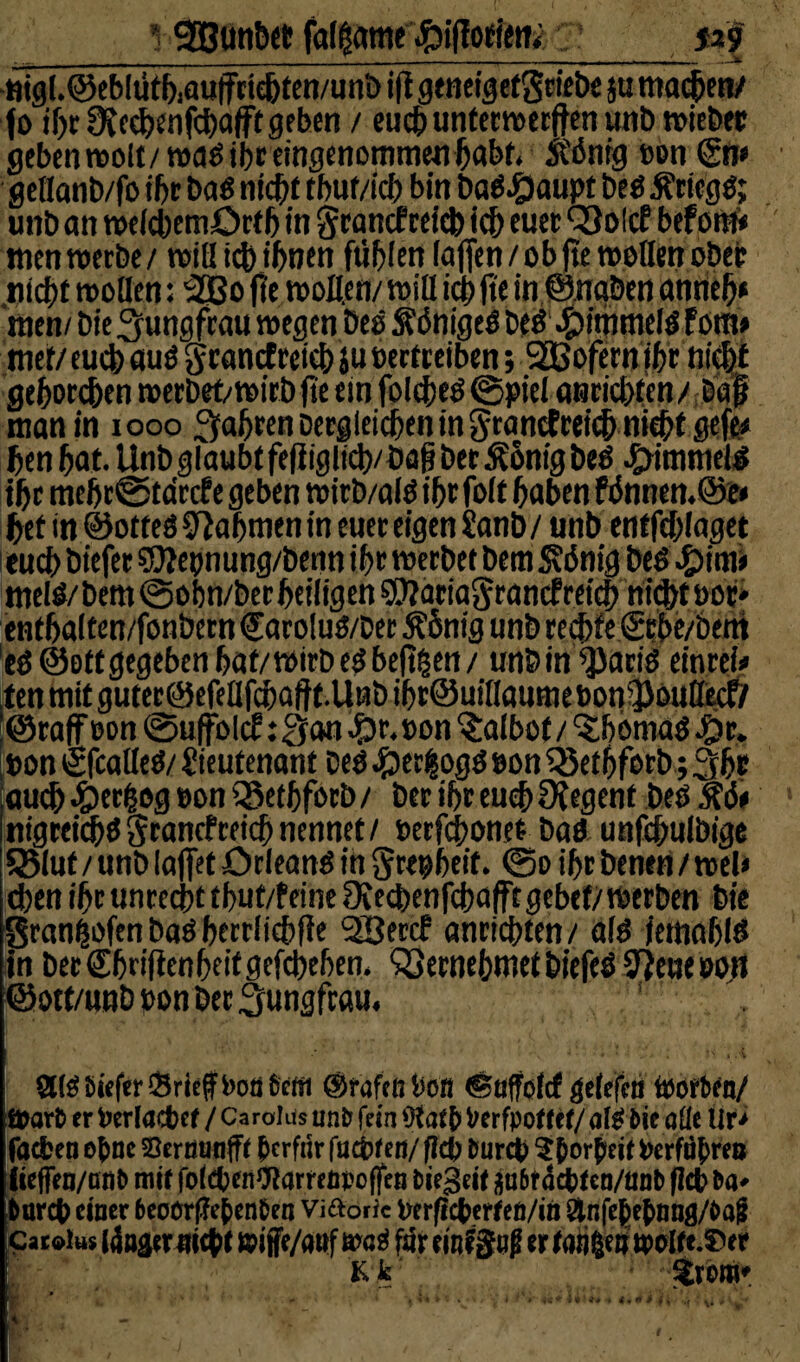 Wunder falßame Historien. 529
nigl. Geblüth auffrichten/und ist geneiget Friede zu machen/
so ihr Rechenschafft geben / euch unterwerffen und wieder
geben wolt / was ihr eingenommen habt. König von En-
gelland/so ihr das nicht thut/ich bin das Haupt des Kriegs;
und an welchem Orth in Franckreich ich euer Volck bekom-
men werde / will ich ihnen fühlen lassen / ob sie wollen oder
nicht wollen: Wo sie wollen/ will ich sie in Gnaden anneh-
men/ die Jungfrau wegen des Königes des Himmels kom-
met/ euch aus Franckreich zu vertreiben; Wofern ihr nicht
gehorchen werdet/wird sie ein solches Spiel anrichten / daß
man in 1000 Jahren dergleichen in Franckreich nicht gese-
hen hat. Und glaubt festiglich/ daß der König des Himmels
ihr mehr Stärcke geben wird/als ihr solt haben können. Ge-
het in Gottes Nahmen in euer eigen Land / und entschlaget
euch dieser Meynung/denn ihr werdet dem König des Him-
mels/ dem Sohn/der heiligen Maria Franckreich nicht vor-
enthalten/sondern Carolus/der König und rechte Erbe/dem
es Gott gegeben hat/ wird es besitzen / und in Paris einrei-
ten mit guter Gesellschafft. Und ihr Guillaume von Poulleck/
Graff von Suffolck: Jan Hr. von Talbot / Thomas Hr.
von Escalles/ Lieutenant des Hertzogs von Bethford; Ihr
auch Hertzog von Bethford / der ihr euch Regent des Kö-
nigreichs Franckreich nennet / verschonet das unschuldige
Blut / und lasset Orleans in Freyheit. So ihr denen / wel-
chen ihr unrecht thut/keine Rechenschafft gebet/ werden die
Frantzosen das herrlichste Werck anrichten / als jemahls
in der Christenheit geschehen. Vernehmet dieses Neue von
Gott/und von der Jungfrau.
Als dieser Brieff von dem Grafen von Suffolck gelesen worden/
ward er verlachet / Carolus und sein Rath verspottet/ als die alle Ur-
sachen ohne Vernunfft herfür suchten/ sich durch Thorheit verführen
liessen/und mit solchen Narrenpossen die Zeit zubrächten/und sich da-
durch einer bevorstehenden Victorie versicherten/in Ansehehung/daß
Carolus länger nicht wisse/auf was für eine Fuß er tantzen wolte. Der
Kk Trom-